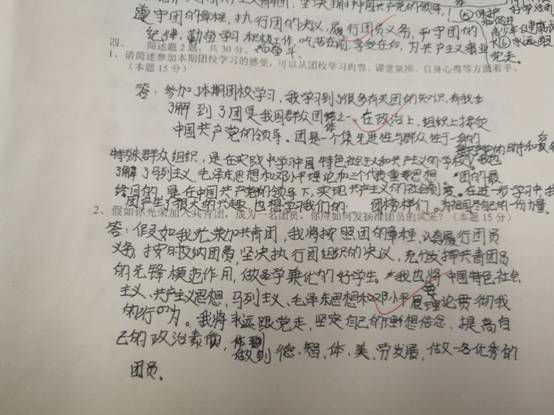 遵守团的章程,执行团的决议,履行团员义务,严守团的
纪律,勤奋学习,积极工作,吃苦在前,享受在后,为共产主义事业
四、简述题2题,共30分。
1、请简述参加本期团校学习的感受,可以从团校学习内容、课堂氛围、自身心得等方面着手。
(本题15分)
答:参加了本期团校学习,我学习到了很多有关团的知识,
了解到了团是我国群众团体之一,在政治上、组织上接受
中国共产党的领导。团是一个集先进性与群众性于一身的
特殊群众组织,是在实践中学习中国特色社会主义和共产主义的学校。我也
了解了马列主义、毛泽东思想和邓小平理论和三个代表重要思想。团的最
终目的,是在中国共产党的领导下,实现共产主义的社会制度。在进一步学习中,我
团产生了很大的兴趣,也想学习我们的
2、假如你光荣加入共青团,成为一名团员,你应如何发扬模范团员的风采?(本题15分)
答:假如我光荣加共青团,我将按照团的章程,认真履行团员
义务,按时交纳团费,坚决执行团组织的决议,充分发挥共青团员
的先锋模范作用,做勤学乘化的好学生。我也将中国特色社会
主义、共产主义思想、马列主义、毛泽东思想和邓小平理论贯彻我
的行为。我将永远跟党走,坚定自己的理想信念,提高自
己的政治素质,做到德、智、体、美、劳发展,做一名优秀的
团员。